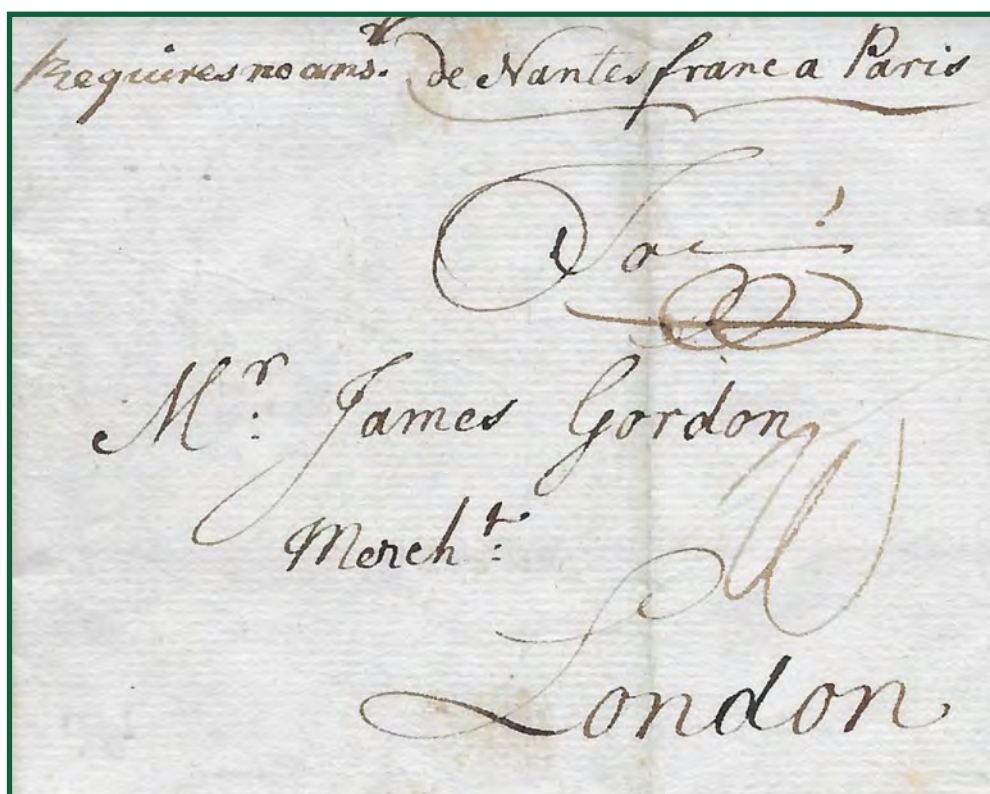 Requires no ansr. de Nantes franc a Paris
To
Mr. James Gordon
Mercht.
London